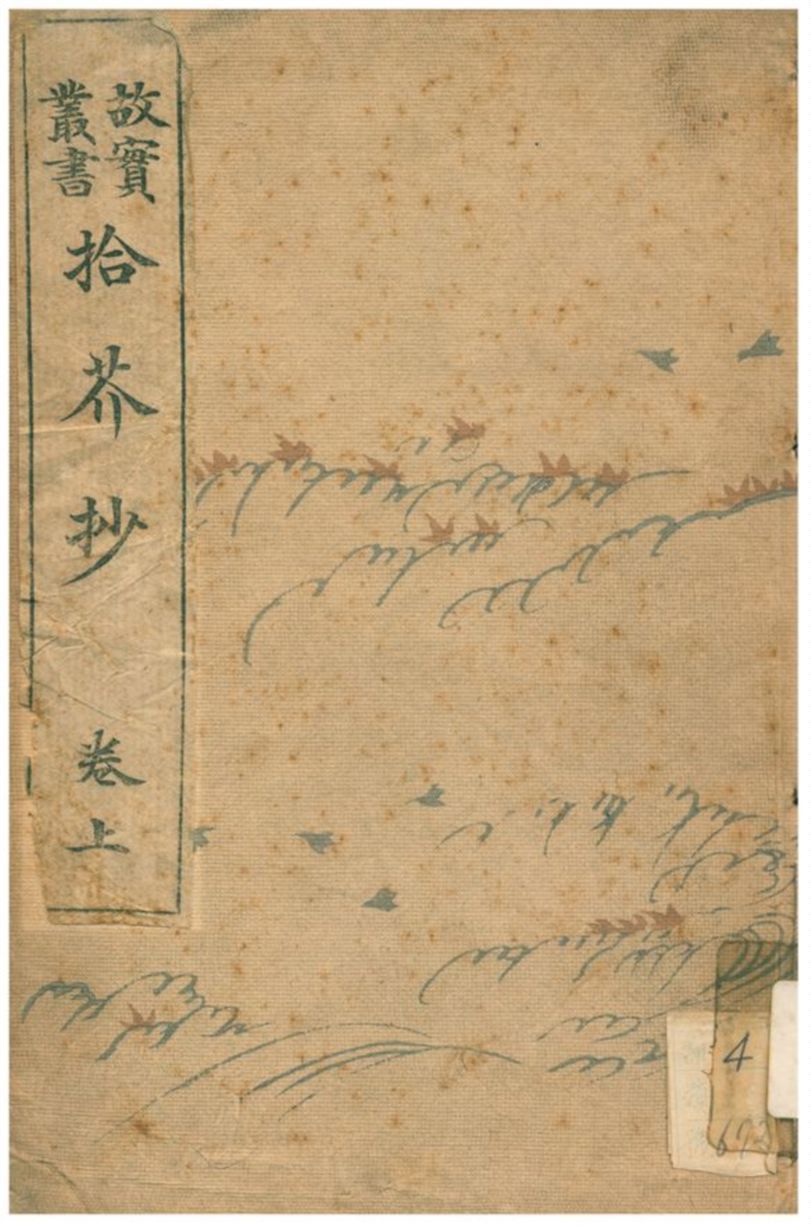 故實
叢書
拾芥抄
卷上
4
692